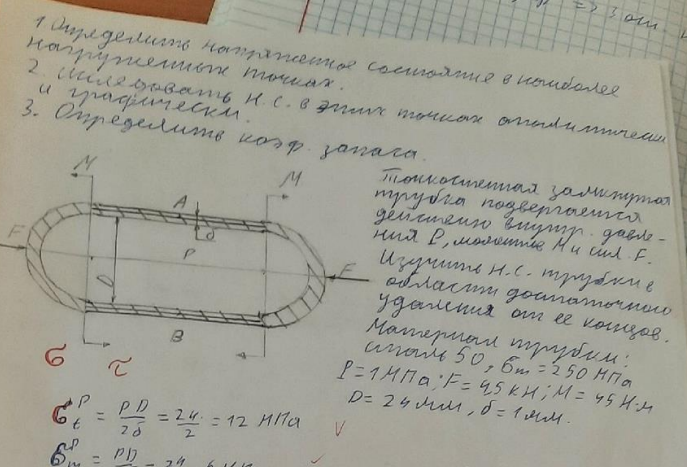 1. Определить напряженное состояние в наиболее
нагруженных точках.
2. Исследовать н.с. в этих точках аналитически
и графически.
3. Определить коэф. запаса.
M
M
A
δ
F
P
D
F
B
Тонкостенная замкнутая
трубка подвергается
действию внутр. давле-
ния P, момента M и сил. F.
Изучить н.с. трубки в
области достаточного
удаления от ее концов.
Материал трубки:
сталь 50, σт = 250 МПа
P=1МПа; F=4,5кН; M=45Н·м
D=24мм, δ=1мм.
σ τ
σtᴾ = PD/2δ = 24/2 = 12 МПа
σmᴾ = PD